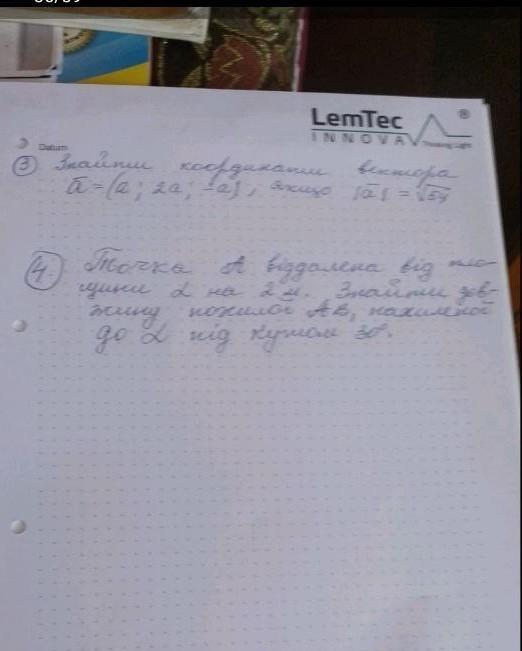 LemTec
®
INNOVA
Thinking Light
Datum
3 Знайти координати вектора
ā = (a; 2a; -a), якщо |ā| = √54
4. Точка А віддалена від пло-
щини α на 2 м. Знайти дов-
жину похилої АВ, нахиленої
до α під кутом 30°.